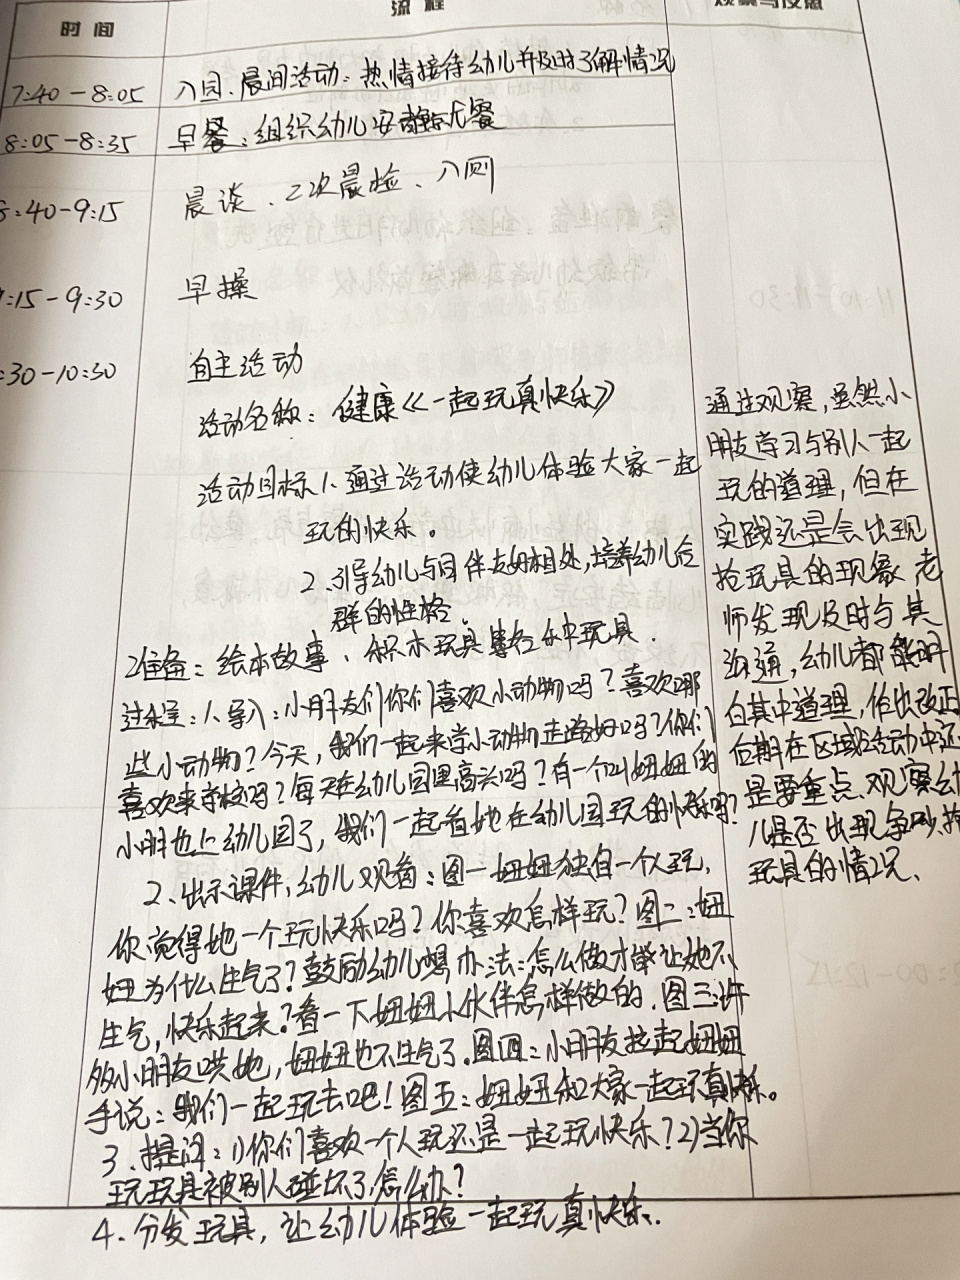 时间
流程
观察与反思
7:40-8:05
入园、晨间活动：热情接待幼儿并及时了解情况
8:05-8:35
早餐：组织幼儿安静就餐
8:40-9:15
晨谈、二次晨检、入厕
:15-9:30
早操
:30-10:30
自主活动
活动名称：健康《一起玩真快乐》
活动目标1、通过活动使幼儿体验大家一起
玩的快乐。
2、引导幼儿与同伴友好相处,培养幼儿合
群的性格.
准备：绘本故事、积木玩具 玩具.
过程：1、导入：小朋友们你们喜欢小动物吗？喜欢哪
些小动物？今天，我们一起来学小动物走路好吗？你们
喜欢来学校吗？每天在幼儿园里高兴吗？有一个叫妞妞的
小朋也上幼儿园了，我们一起看她在幼儿园玩的快乐吗？
2、出示课件，幼儿观看：图一妞妞独自一个人玩，
你觉得她一个玩快乐吗？你喜欢怎样玩？图二：妞
妞为什么生气了？鼓励幼儿想办法：怎么做才能让她不
生气，快乐起来？看一下妞妞小伙伴怎样做的.图三：许
多小朋友哄她，妞妞也不生气了.图四：小朋友拉起妞妞
手说：我们一起玩去吧！图五：妞妞和大家一起玩真快乐。
3、提问：1)你们喜欢一个人玩还是一起玩快乐？2)当你
玩玩具被别人碰坏了,怎么办？
4、分发玩具，让幼儿体验一起玩真快乐.
通过观察,虽然小
朋友学习与别人一起
玩的道理，但在
实践还是会出现
抢玩具的现象 老
师发现及时与其
沟通，幼儿都能明
白其中道理，作出改正
后期在区域活动中还
是要重点、观察幼
儿是否出现争吵、抢
玩具的情况、